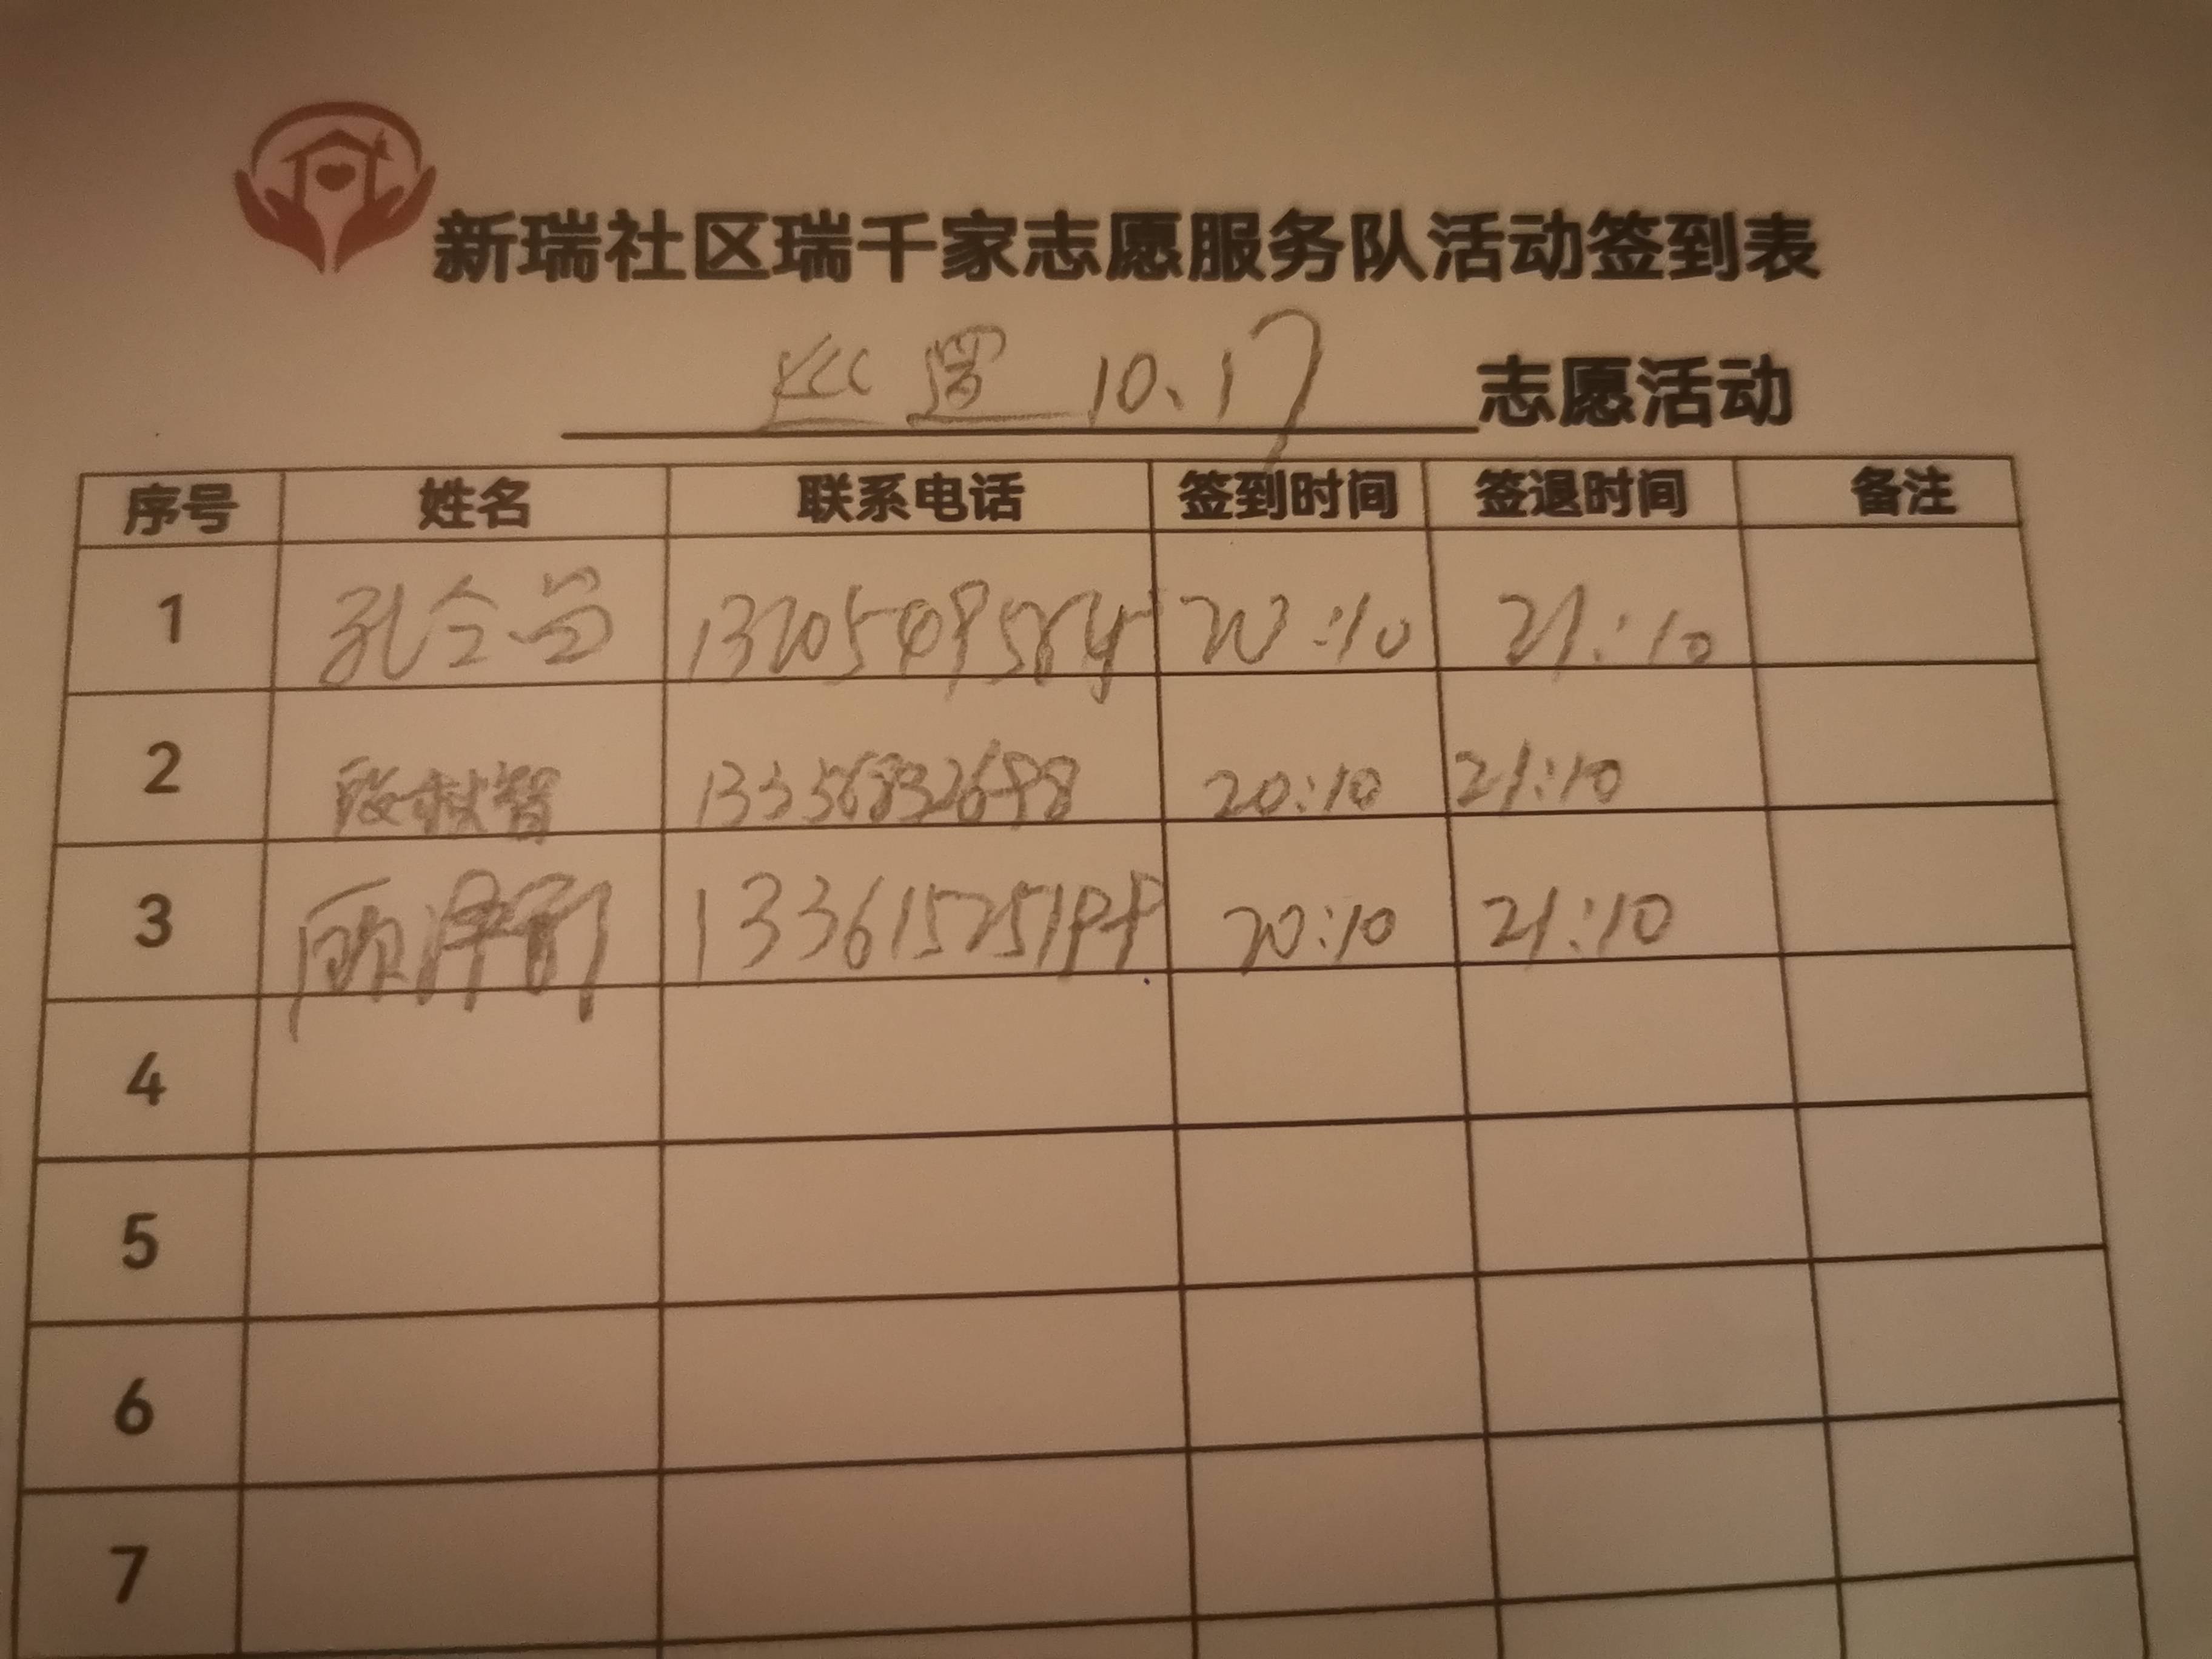 新瑞社区瑞千家志愿服务队活动签到表
10.17 志愿活动
序号 姓名 联系电话 签到时间 签退时间 备注
1 孔令 20:10 21:10
2 13356832698 20:10 21:10
3 顾泽 20:10 21:10
4
5
6
7